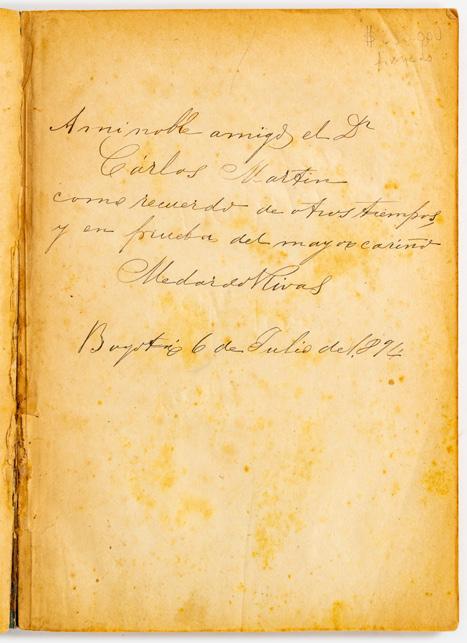 A mi noble amigo el Dr
Cárlos Martin
como recuerdo de otros tiempos
y en prueba del mayor cariño
Medardo Rivas
Bogotá 6 de Julio del 1.894